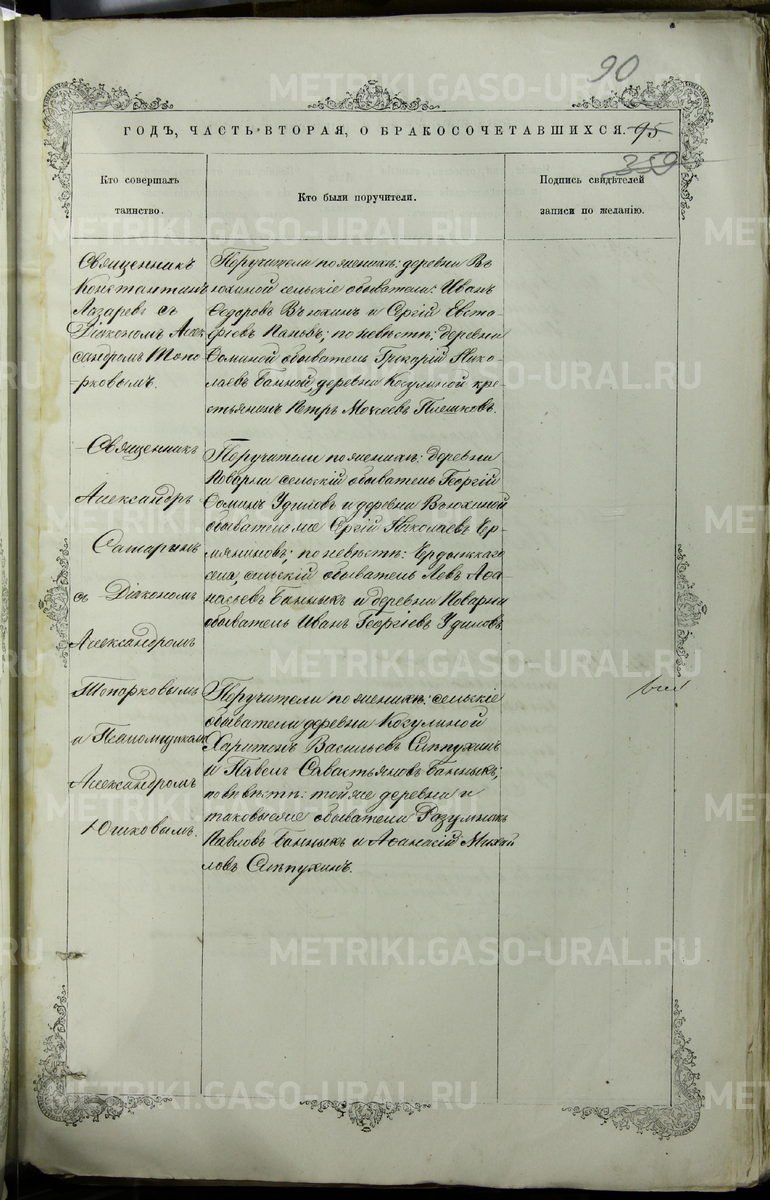 90
ГОДЪ, ЧАСТЬ ВТОРАЯ, О БРАКОСОЧЕТАВШИХСЯ. 95
359
Кто совершалъ
таинство.
Кто были поручители.
Подпись свидѣтелей
записи по желанію.
Священникъ
Константинъ
Лазаревъ съ
Діакономъ Алек
сандромъ Топо
-рковымъ.
Поручители по женихѣ: деревни Въ
юхиной сельскіе обыватели: Иванъ
Ѳедоровъ Вьюхинъ и Сергій Евста
фіевъ Пановъ; по невѣстѣ: деревни
Соминой обыватель Григорій Нико-
лаевъ Банной, деревни Когулиной кре
стьянинъ Петръ Моѵсеевъ Плешковъ.
Священникъ
Александръ
Сатаринъ
съ Діакономъ
Александромъ
Топорковымъ
и Псаломщикомъ
Александромъ
Юшковымъ.
Поручители по женихѣ: деревни
Поварни сельскій обыватель Георгій
Удиловъ и деревни Вьюхиной
обыватель Сергій Николаевъ
по невѣстѣ:
села, сельскій обыватель Левъ Аѳа-
насьевъ Банныхъ и деревни Поварни
обыватель Иванъ Георгіевъ Удиловъ.
Поручители по женихѣ: сельскіе
обыватели деревни Когулиной
Харитонъ Васильевъ Слѣпухинъ
и Павелъ Савастьяновъ Банныхъ;
по невѣстѣ: той же деревни и
таковые же обыватели Разумникъ
Павловъ Банныхъ и Аѳанасій Михай
ловъ Слѣпухинъ.
METRIKI.GASO-URAL.RU